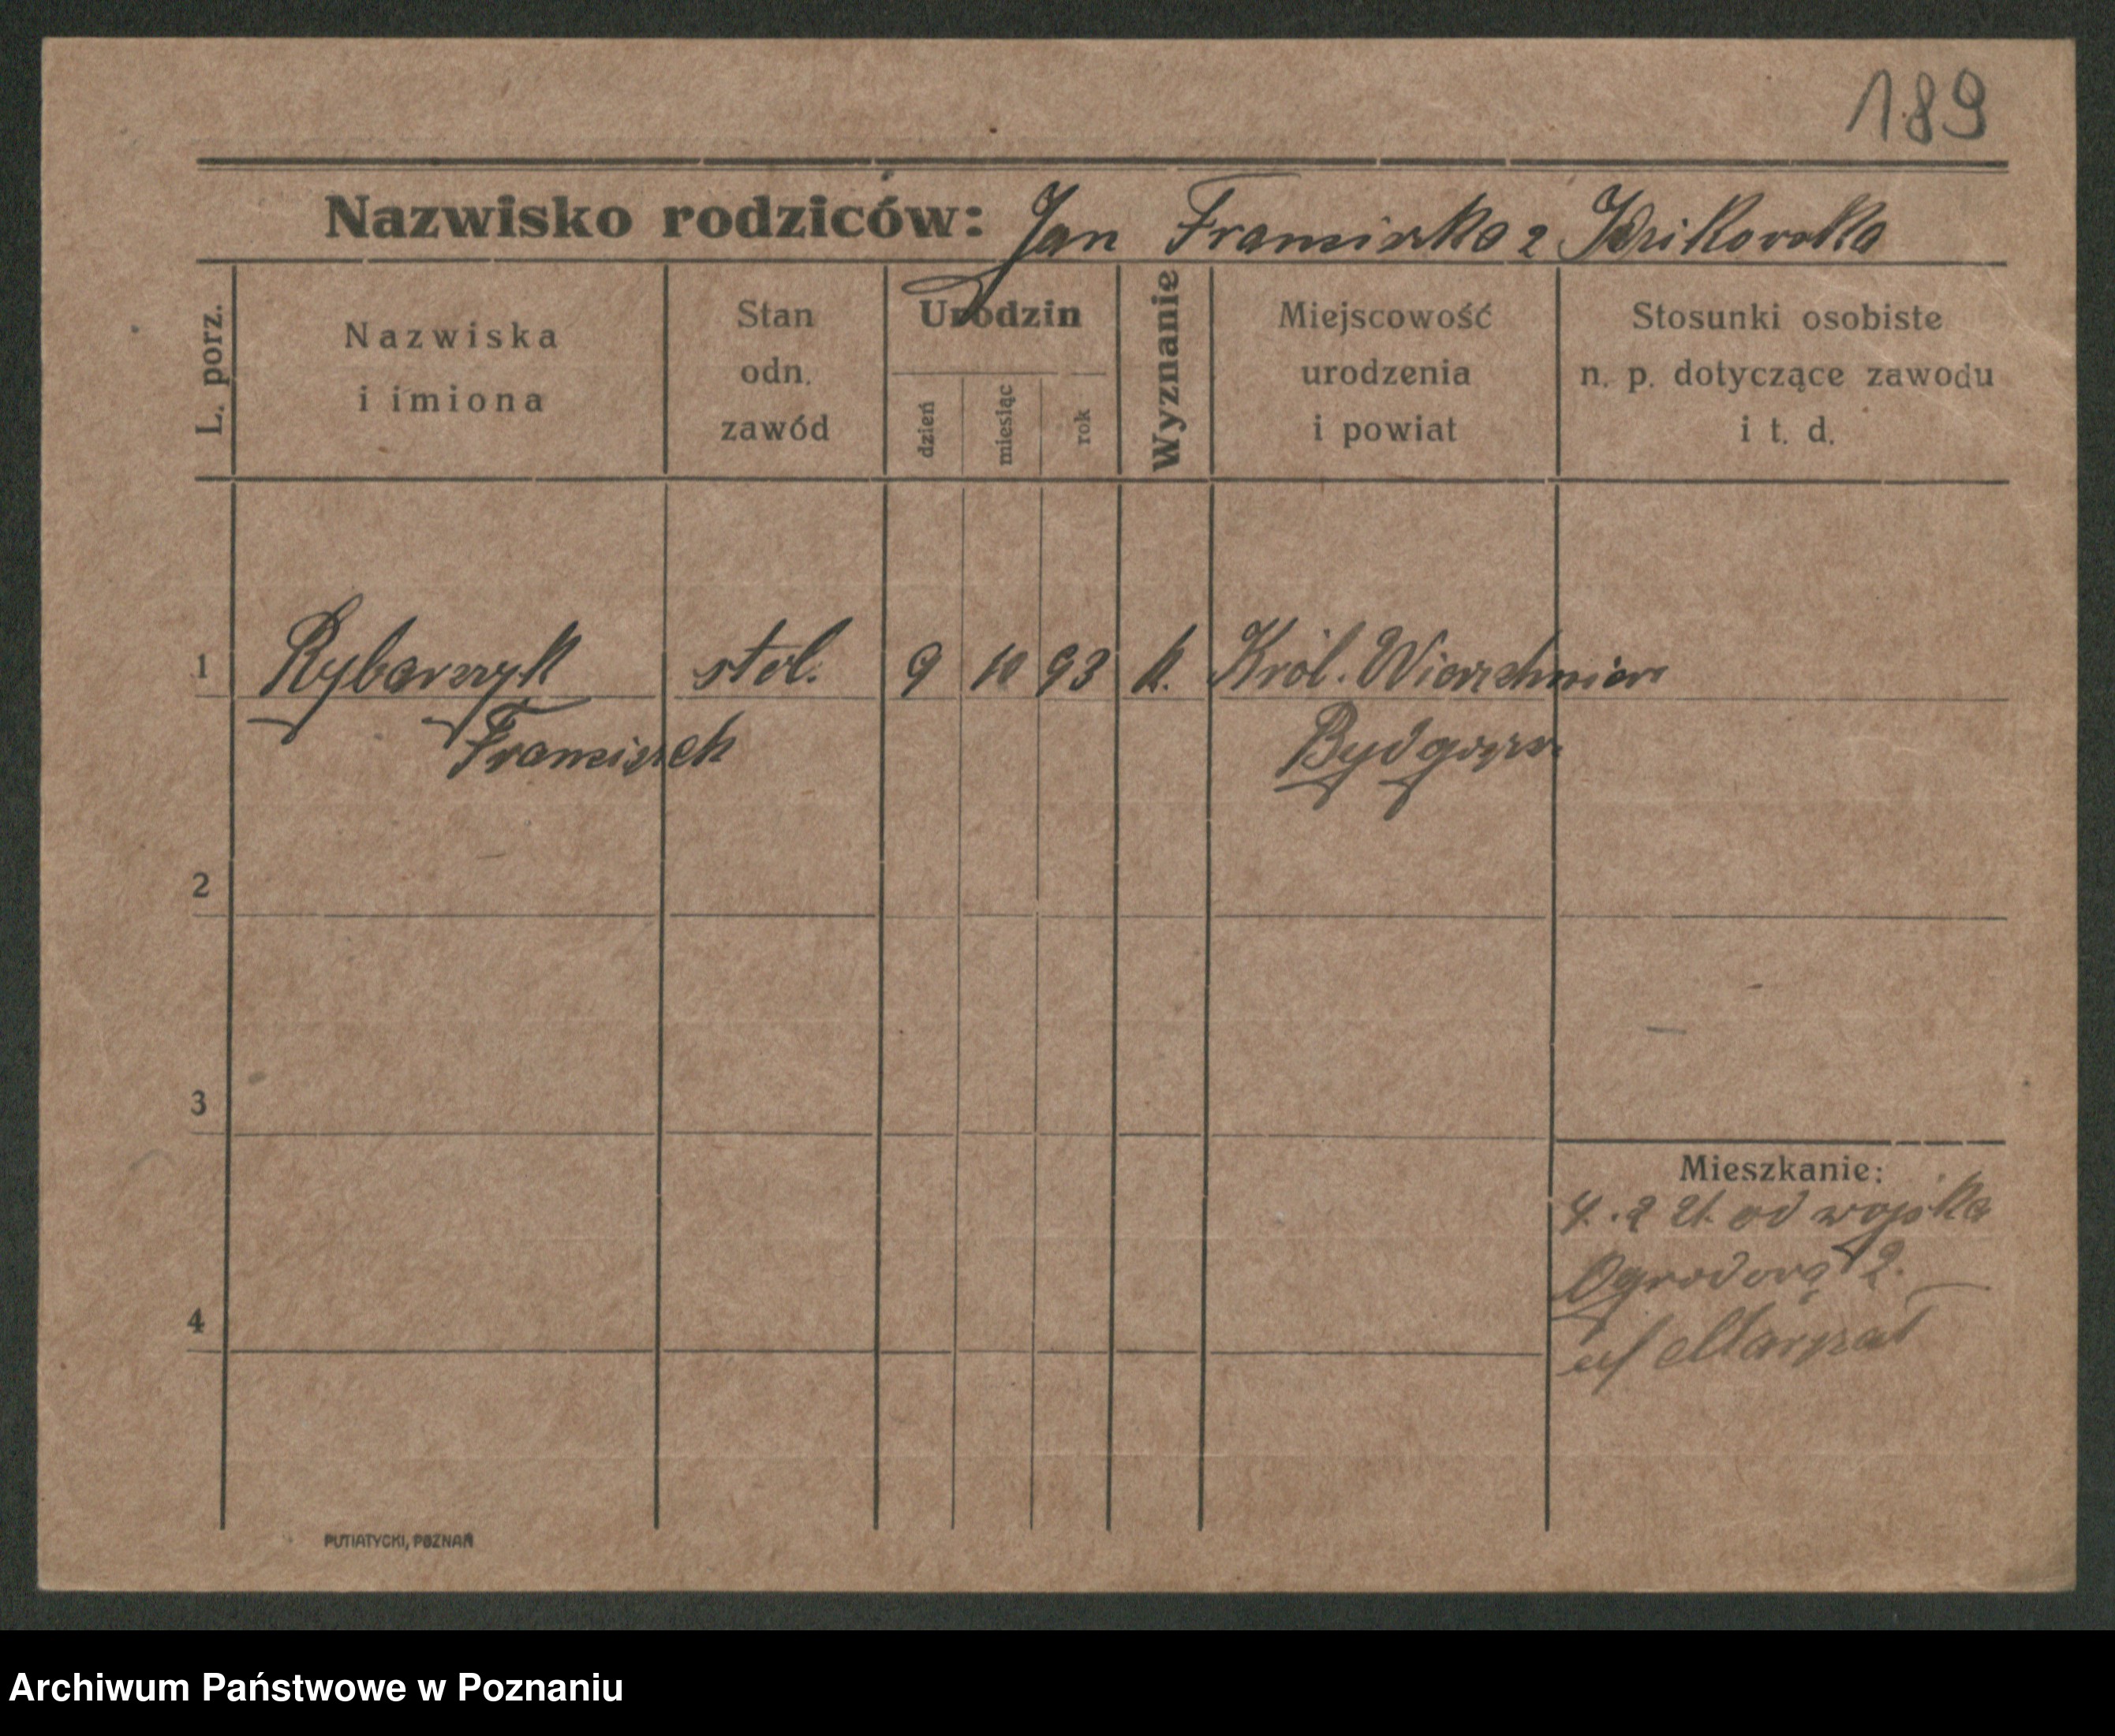 189
Nazwisko rodziców: Jan Franciszka z
L. porz.
Nazwiska
i imiona
Stan
odn.
zawód
Urodzin
dzień
miesiąc
rok
Wyznanie
Miejscowość
urodzenia
i powiat
Stosunki osobiste
n. p. dotyczące zawodu
i t. d.
1 Rybarczyk stol. 9 10 93 k. Król.
Franciszek
2
3
4
Mieszkanie:
4. 2 21. od wojska
Ogrodową 2.
PUTIATYCKI, POZNAŃ
Archiwum Państwowe w Poznaniu